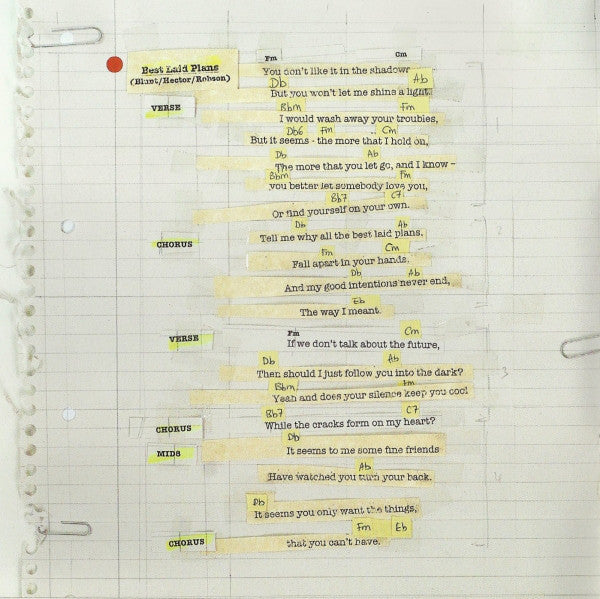 Best Laid Plans
(Blunt/Hector/Robson)
Fm Cm
You don't like it in the shadows
Db Ab
But you won't let me shine a light.
VERSE
Bbm Fm
I would wash away your troubles,
Db6 Fm Cm
But it seems - the more that I hold on,
Db Ab
The more that you let go, and I know -
Bbm Fm
you better let somebody love you,
Bb7 C7
Or find yourself on your own.
Db Ab
Tell me why all the best laid plans,
CHORUS
Fm Cm
Fall apart in your hands,
Db Ab
And my good intentions never end,
Eb
The way I meant.
VERSE
Fm Cm
If we don't talk about the future,
Db Ab
Then should I just follow you into the dark?
Bbm Fm
Yeah and does your silence keep you cool
Bb7 C7
While the cracks form on my heart?
CHORUS
Db
It seems to me some fine friends
MID8
Ab
Have watched you turn your back.
Db
It seems you only want the things,
Fm Eb
that you can't have.
CHORUS